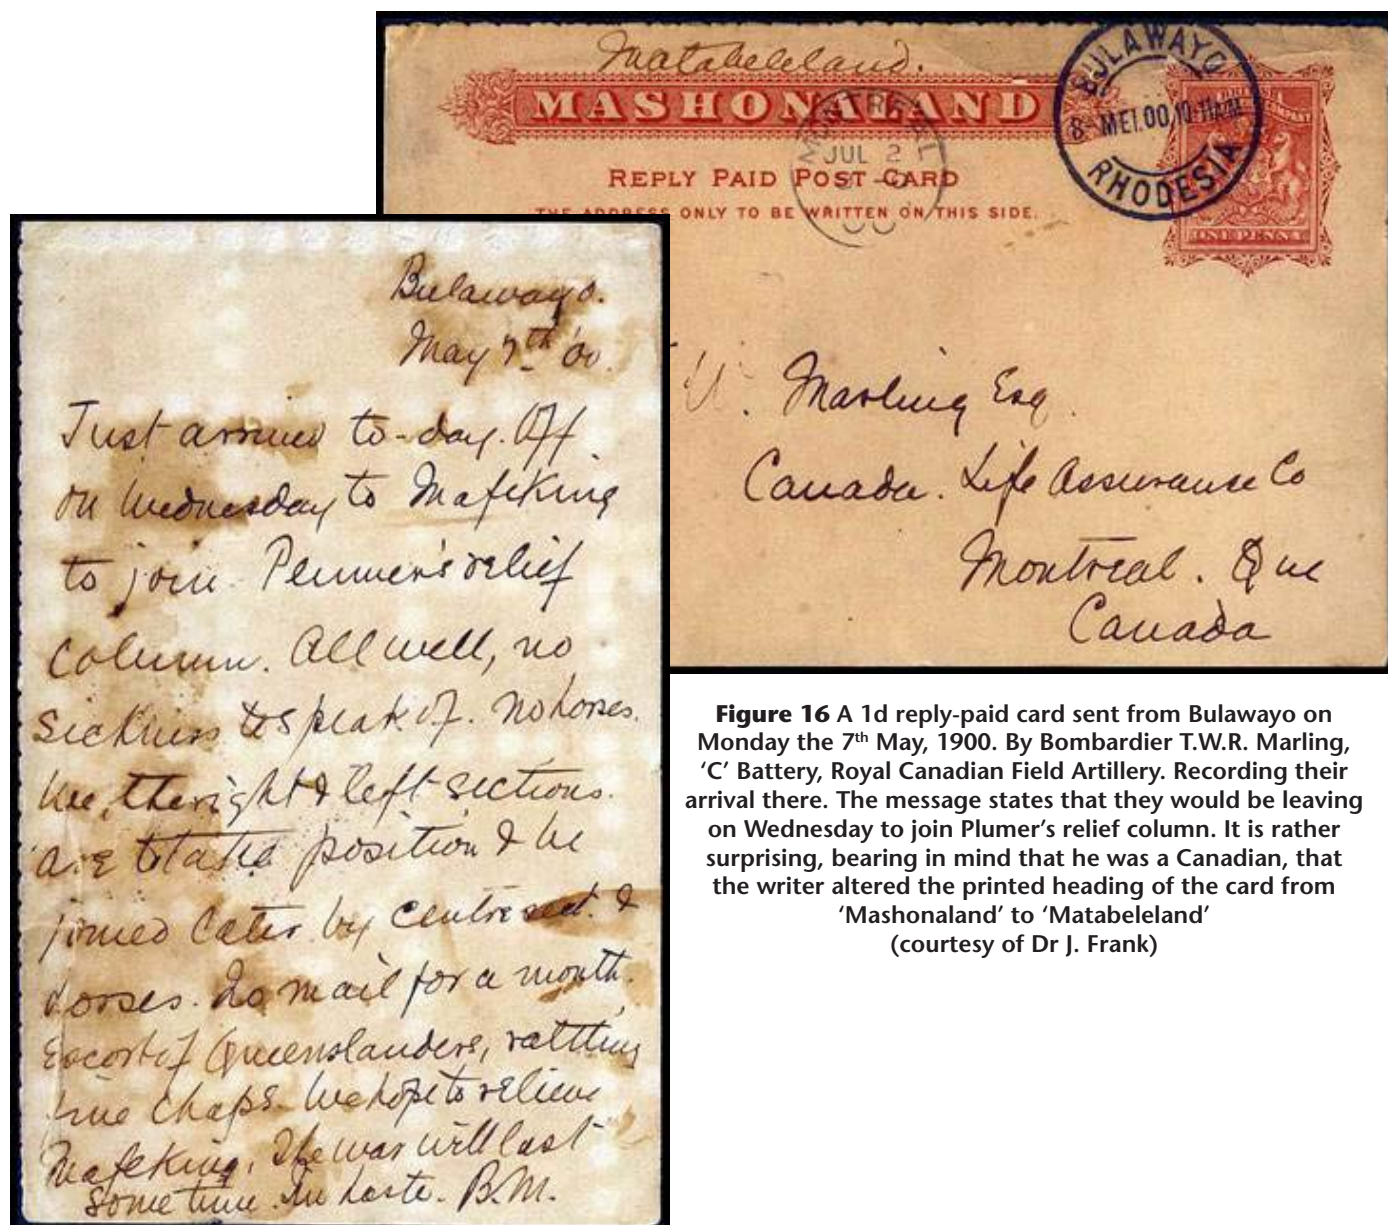 Matabeleland.
MASHONALAND
REPLY PAID POST CARD
THE ADDRESS ONLY TO BE WRITTEN ON THIS SIDE.
MONTREAL
JUL 2
00
BULAWAYO
8 MEI.00.10-11AM
RHODESIA
ONE PENNY
W. Marling Esq.
Canada. Life Assurance Co
Montreal. Que
Canada
Bulawayo.
May 7th '00.
Just arrived to-day. Off
on Wednesday to Mafeking
to join Plumer's relief
Column. All well, no
sickness to speak of. No horses.
We, the right & left sections.
are to take position & be
joined later by centre sect. &
horses. No mail for a month.
Escort of Queenslanders, rattling
fine chaps. We hope to relieve
Mafeking. The war will last
some time. In haste. B.M.
Figure 16 A 1d reply-paid card sent from Bulawayo on
Monday the 7th May, 1900. By Bombardier T.W.R. Marling,
‘C’ Battery, Royal Canadian Field Artillery. Recording their
arrival there. The message states that they would be leaving
on Wednesday to join Plumer’s relief column. It is rather
surprising, bearing in mind that he was a Canadian, that
the writer altered the printed heading of the card from
‘Mashonaland’ to ‘Matabeleland’
(courtesy of Dr J. Frank)